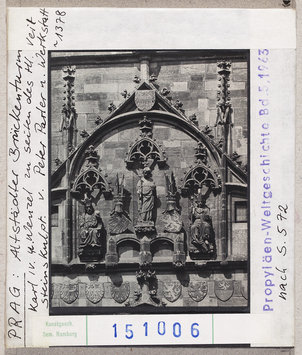 PRAG: Altstädter Brückenturm
Karl IV. u. Wenzel zu seiten des Hl. Veit
Steinskulpt. v. Peter Parler u. Werkstatt
~1378
Propyläen-Weltgeschichte Bd. 5, 1963
nach S. 572
Kunstgesch.
Sem. Hamburg
151006